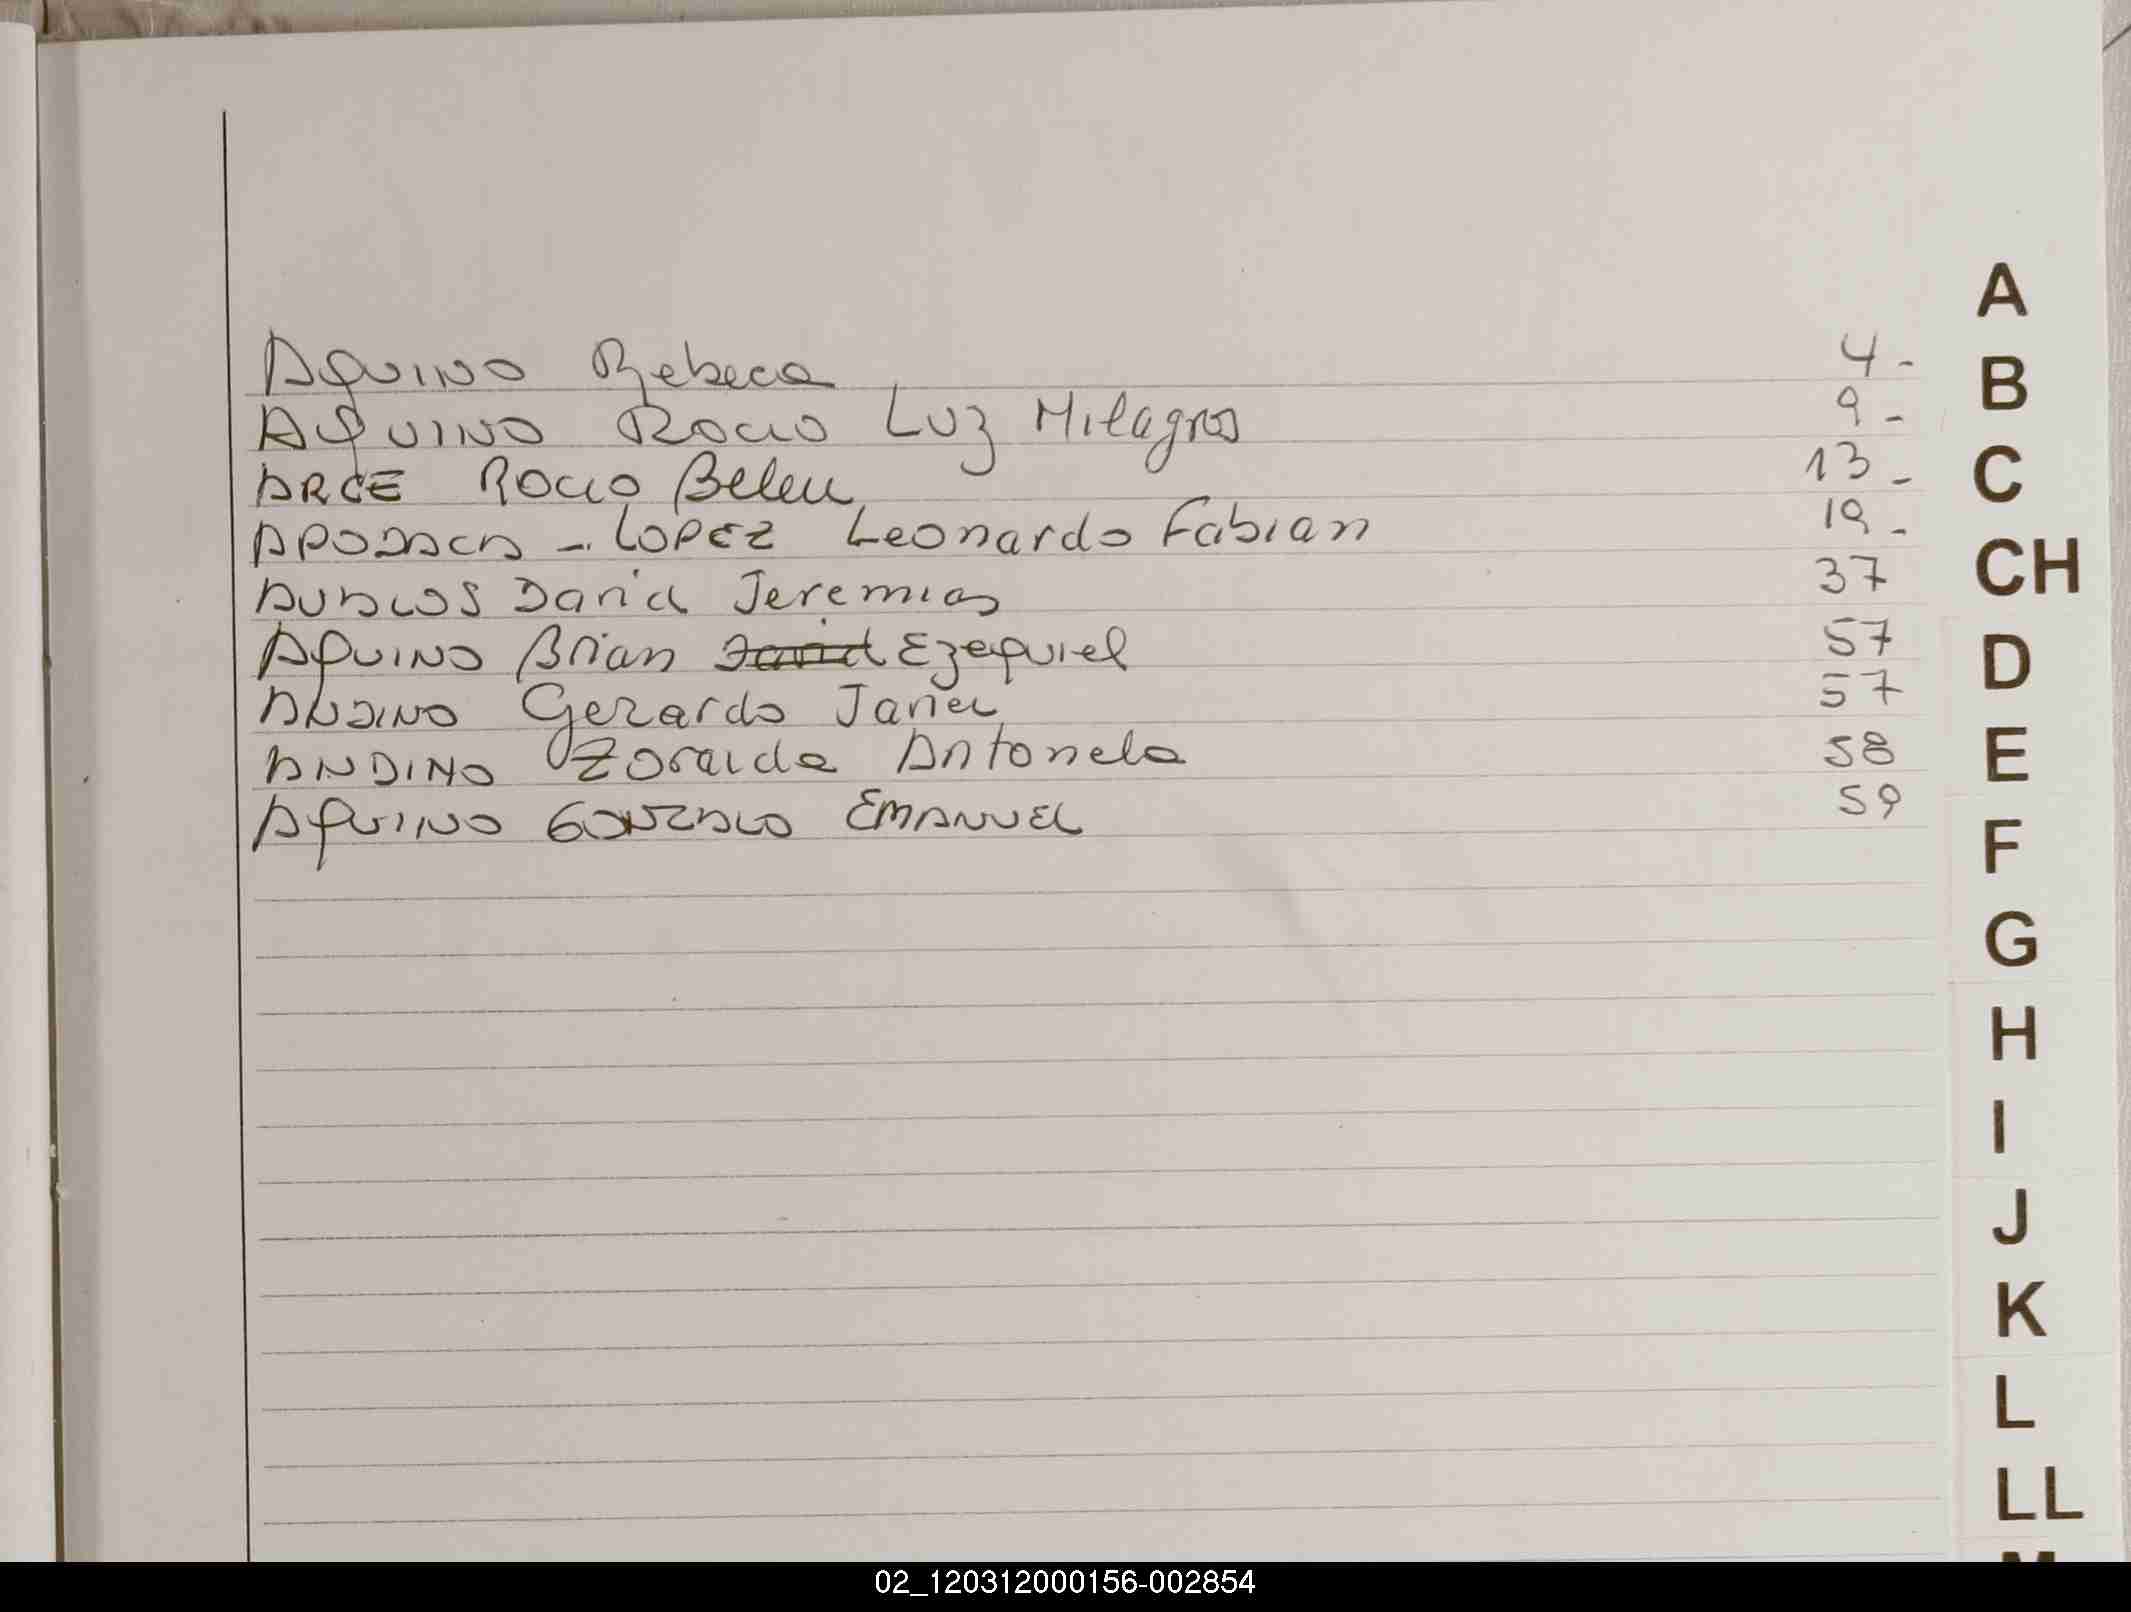 AQUINO Rebeca 4-
AQUINO ROCIO Luz Milagros 9-
ARCE ROCIO Belen 13-
APODACA - LOPEZ Leonardo Fabian 19-
David Jeremias 37
AQUINO Brian David Ezequiel 57
ANDINO Gerardo Javier 57
ANDINO Zoraida Antonela 58
AQUINO GONZALO EMANUEL 59
A
B
C
CH
D
E
F
G
H
I
J
K
L
LL
M
02_120312000156-002854